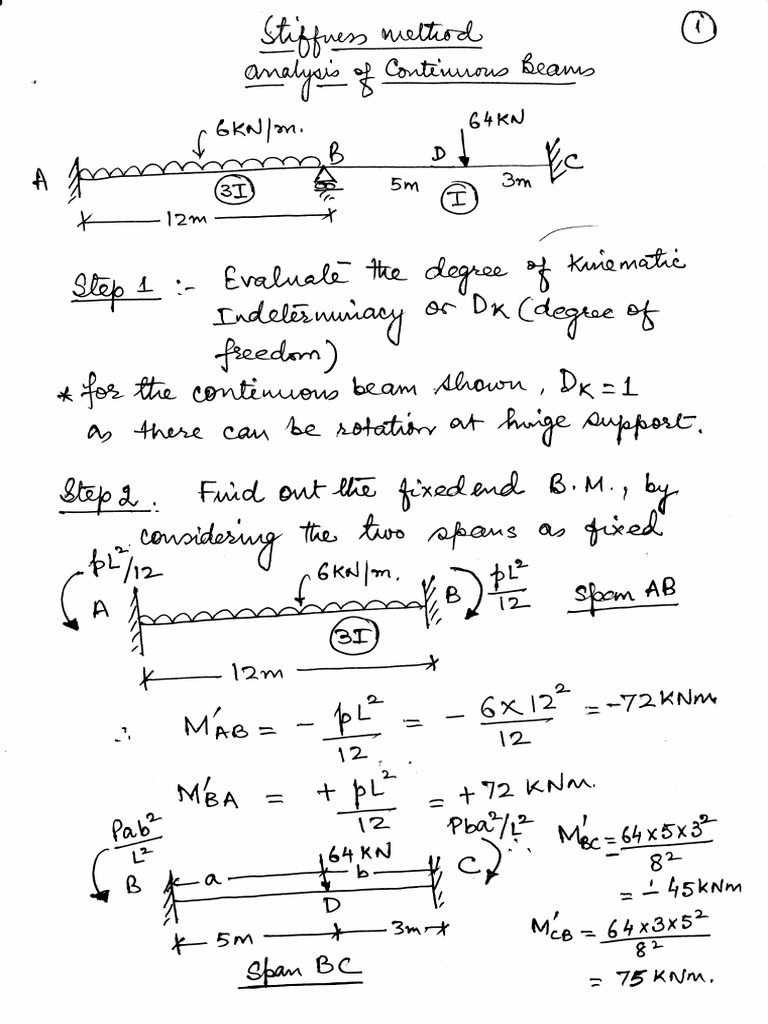 1
Stiffness method
analysis of Continuous Beams
6KN/m.
64KN
A
B
D
C
3I
5m
I
3m
12m
Step 1 :- Evaluate the degree of Kinematic
Indeterminacy or DK (degree of
freedom)
* for the continuous beam shown, DK = 1
as there can be rotation at hinge support.
Step 2. Find out the fixed end B.M., by
considering the two spans as fixed
pL²/12
6KN/m.
pL²/12
A
B
Span AB
3I
12m
∴ M'AB = - pL²/12 = - 6×12²/12 = -72 KNm
M'BA = + pL²/12 = +72 KNm.
Pab²/L²
Pba²/L²
∴ M'BC = - 64×5×3²/8²
= - 45 KNm
64 KN
B
a
b
C
D
5m
3m
M'CB = 64×3×5²/8²
= 75 KNm.
Span BC